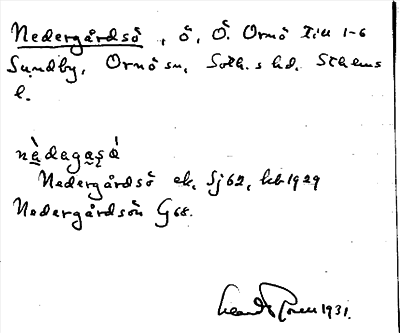 Nedergårdsö, ö, Ö. Ornö Till 1-6
Sundby, Ornö sn, Soth.s hd. Sthlms
l.
nèdagaṣö̀
Nedergårdsö ek, Sj 62, kb 1929
Nedergårdsön G 68.
1931.